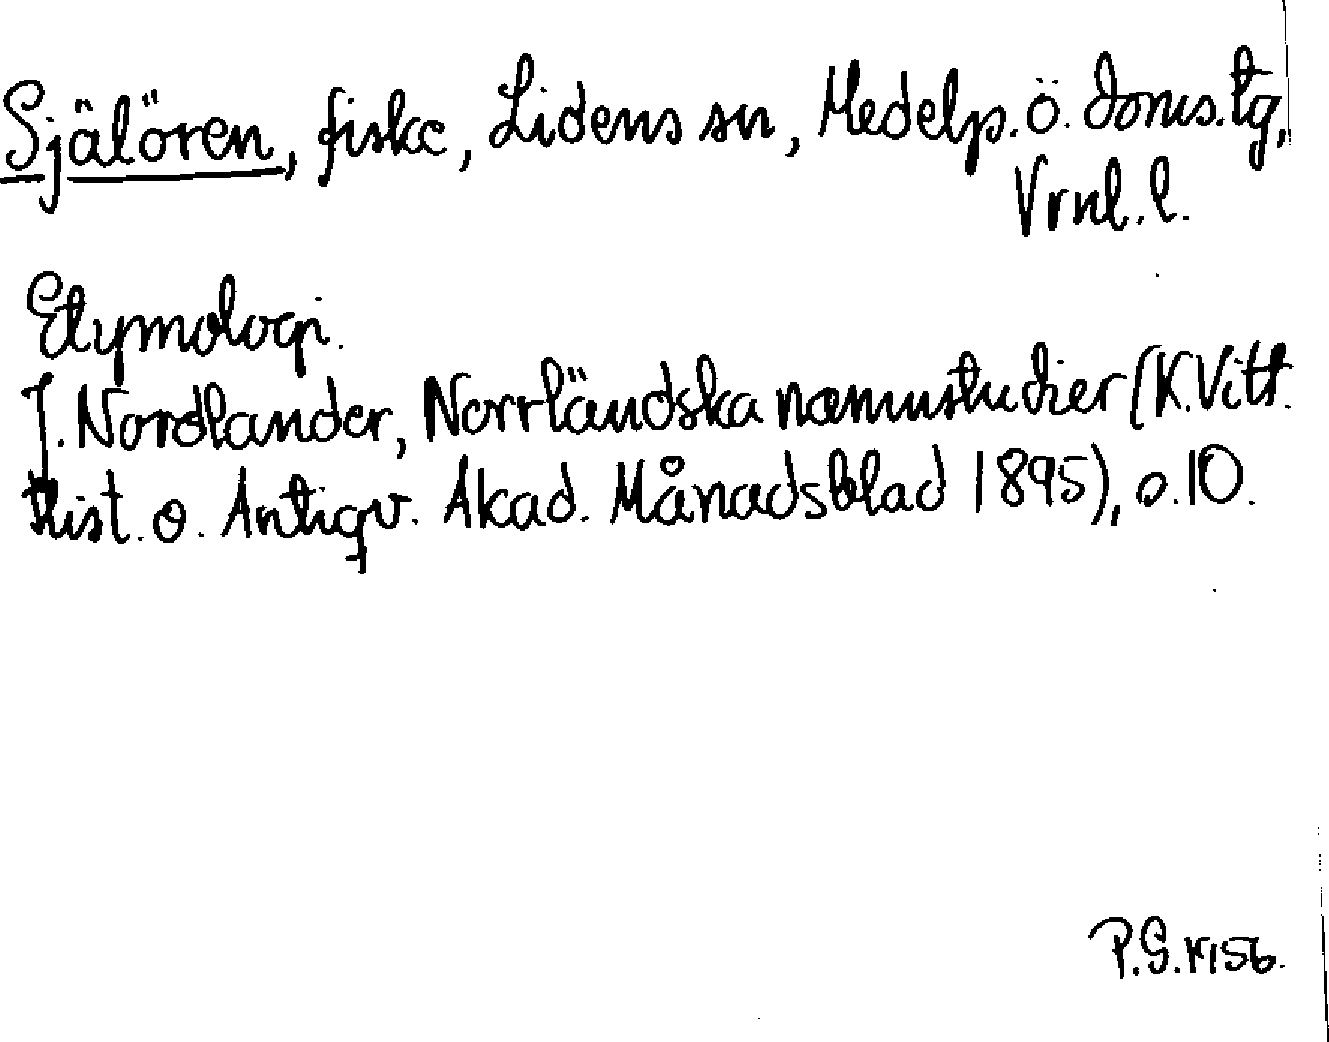 Själören, fiske, Lidens sn, Medelp. ö. doms. tg,
Vrnl. l.
Etymologi.
J. Nordlander, Norrländska namnstudier (K. Vitt.
Hist. o. Antiqv. Akad. Månadsblad 1895), s. 10.
P.G.